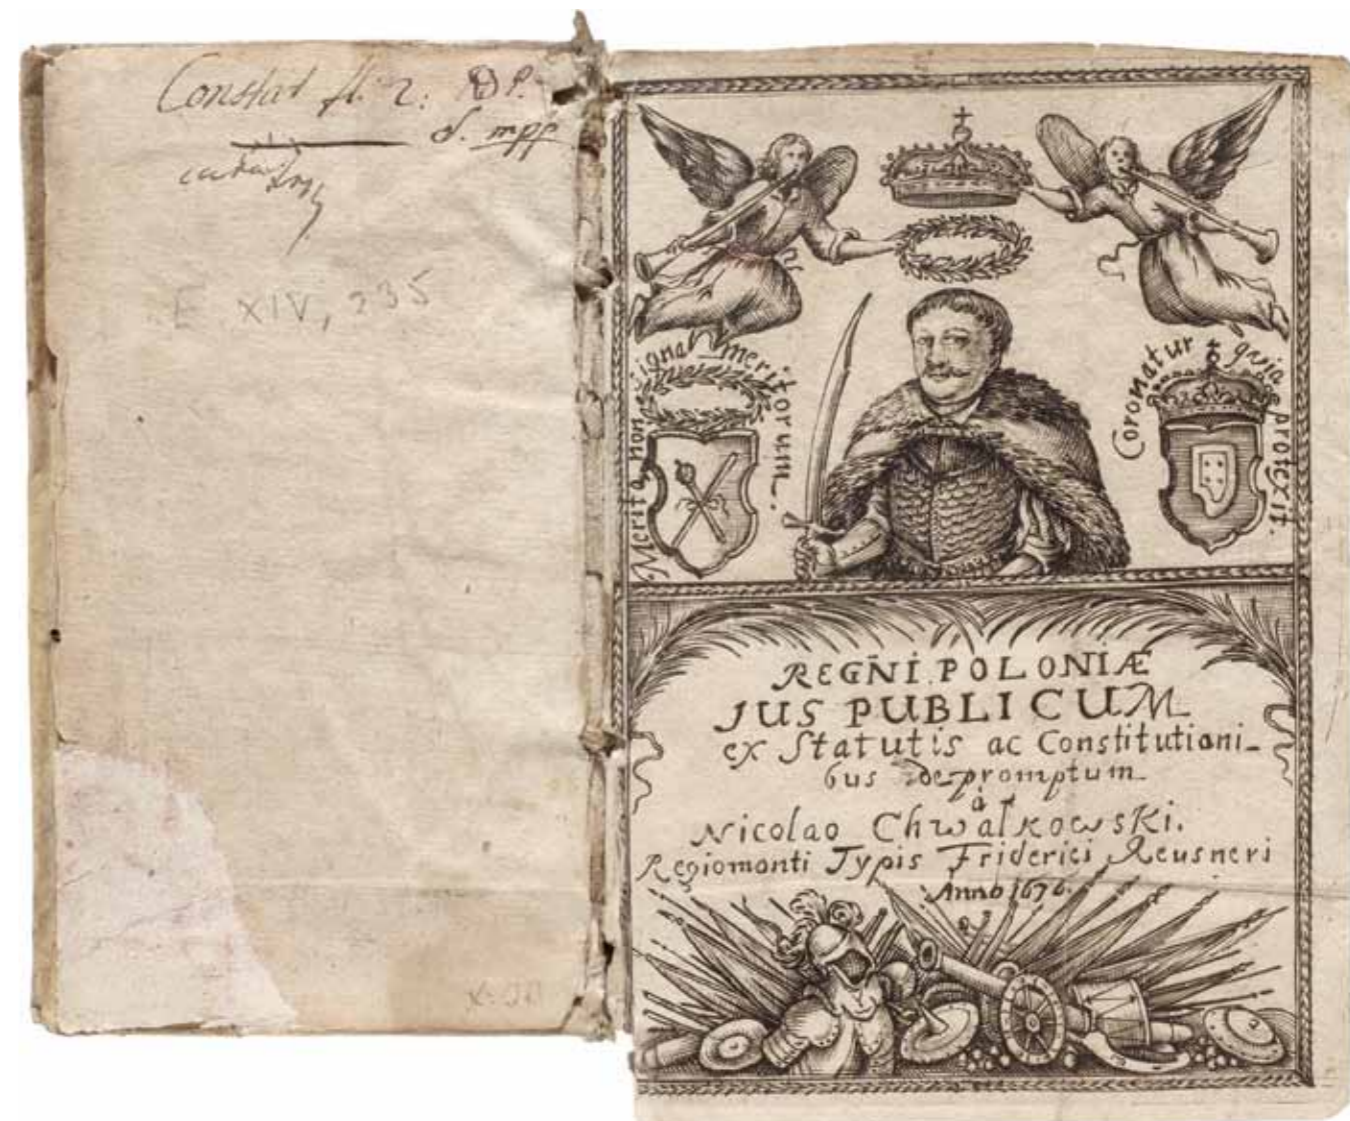 Constat fl. 2:
E XIV, 235
Merita, non signa meritorum.
Coronatur quia protexit.
REGÑI POLONIÆ
JUS PUBLICUM
ex Statutis ac Constitutioni-
bus depromptum
à
Nicolao Chwalkowski.
Regiomonti Typis Friderici Reusneri
Anno 1676.